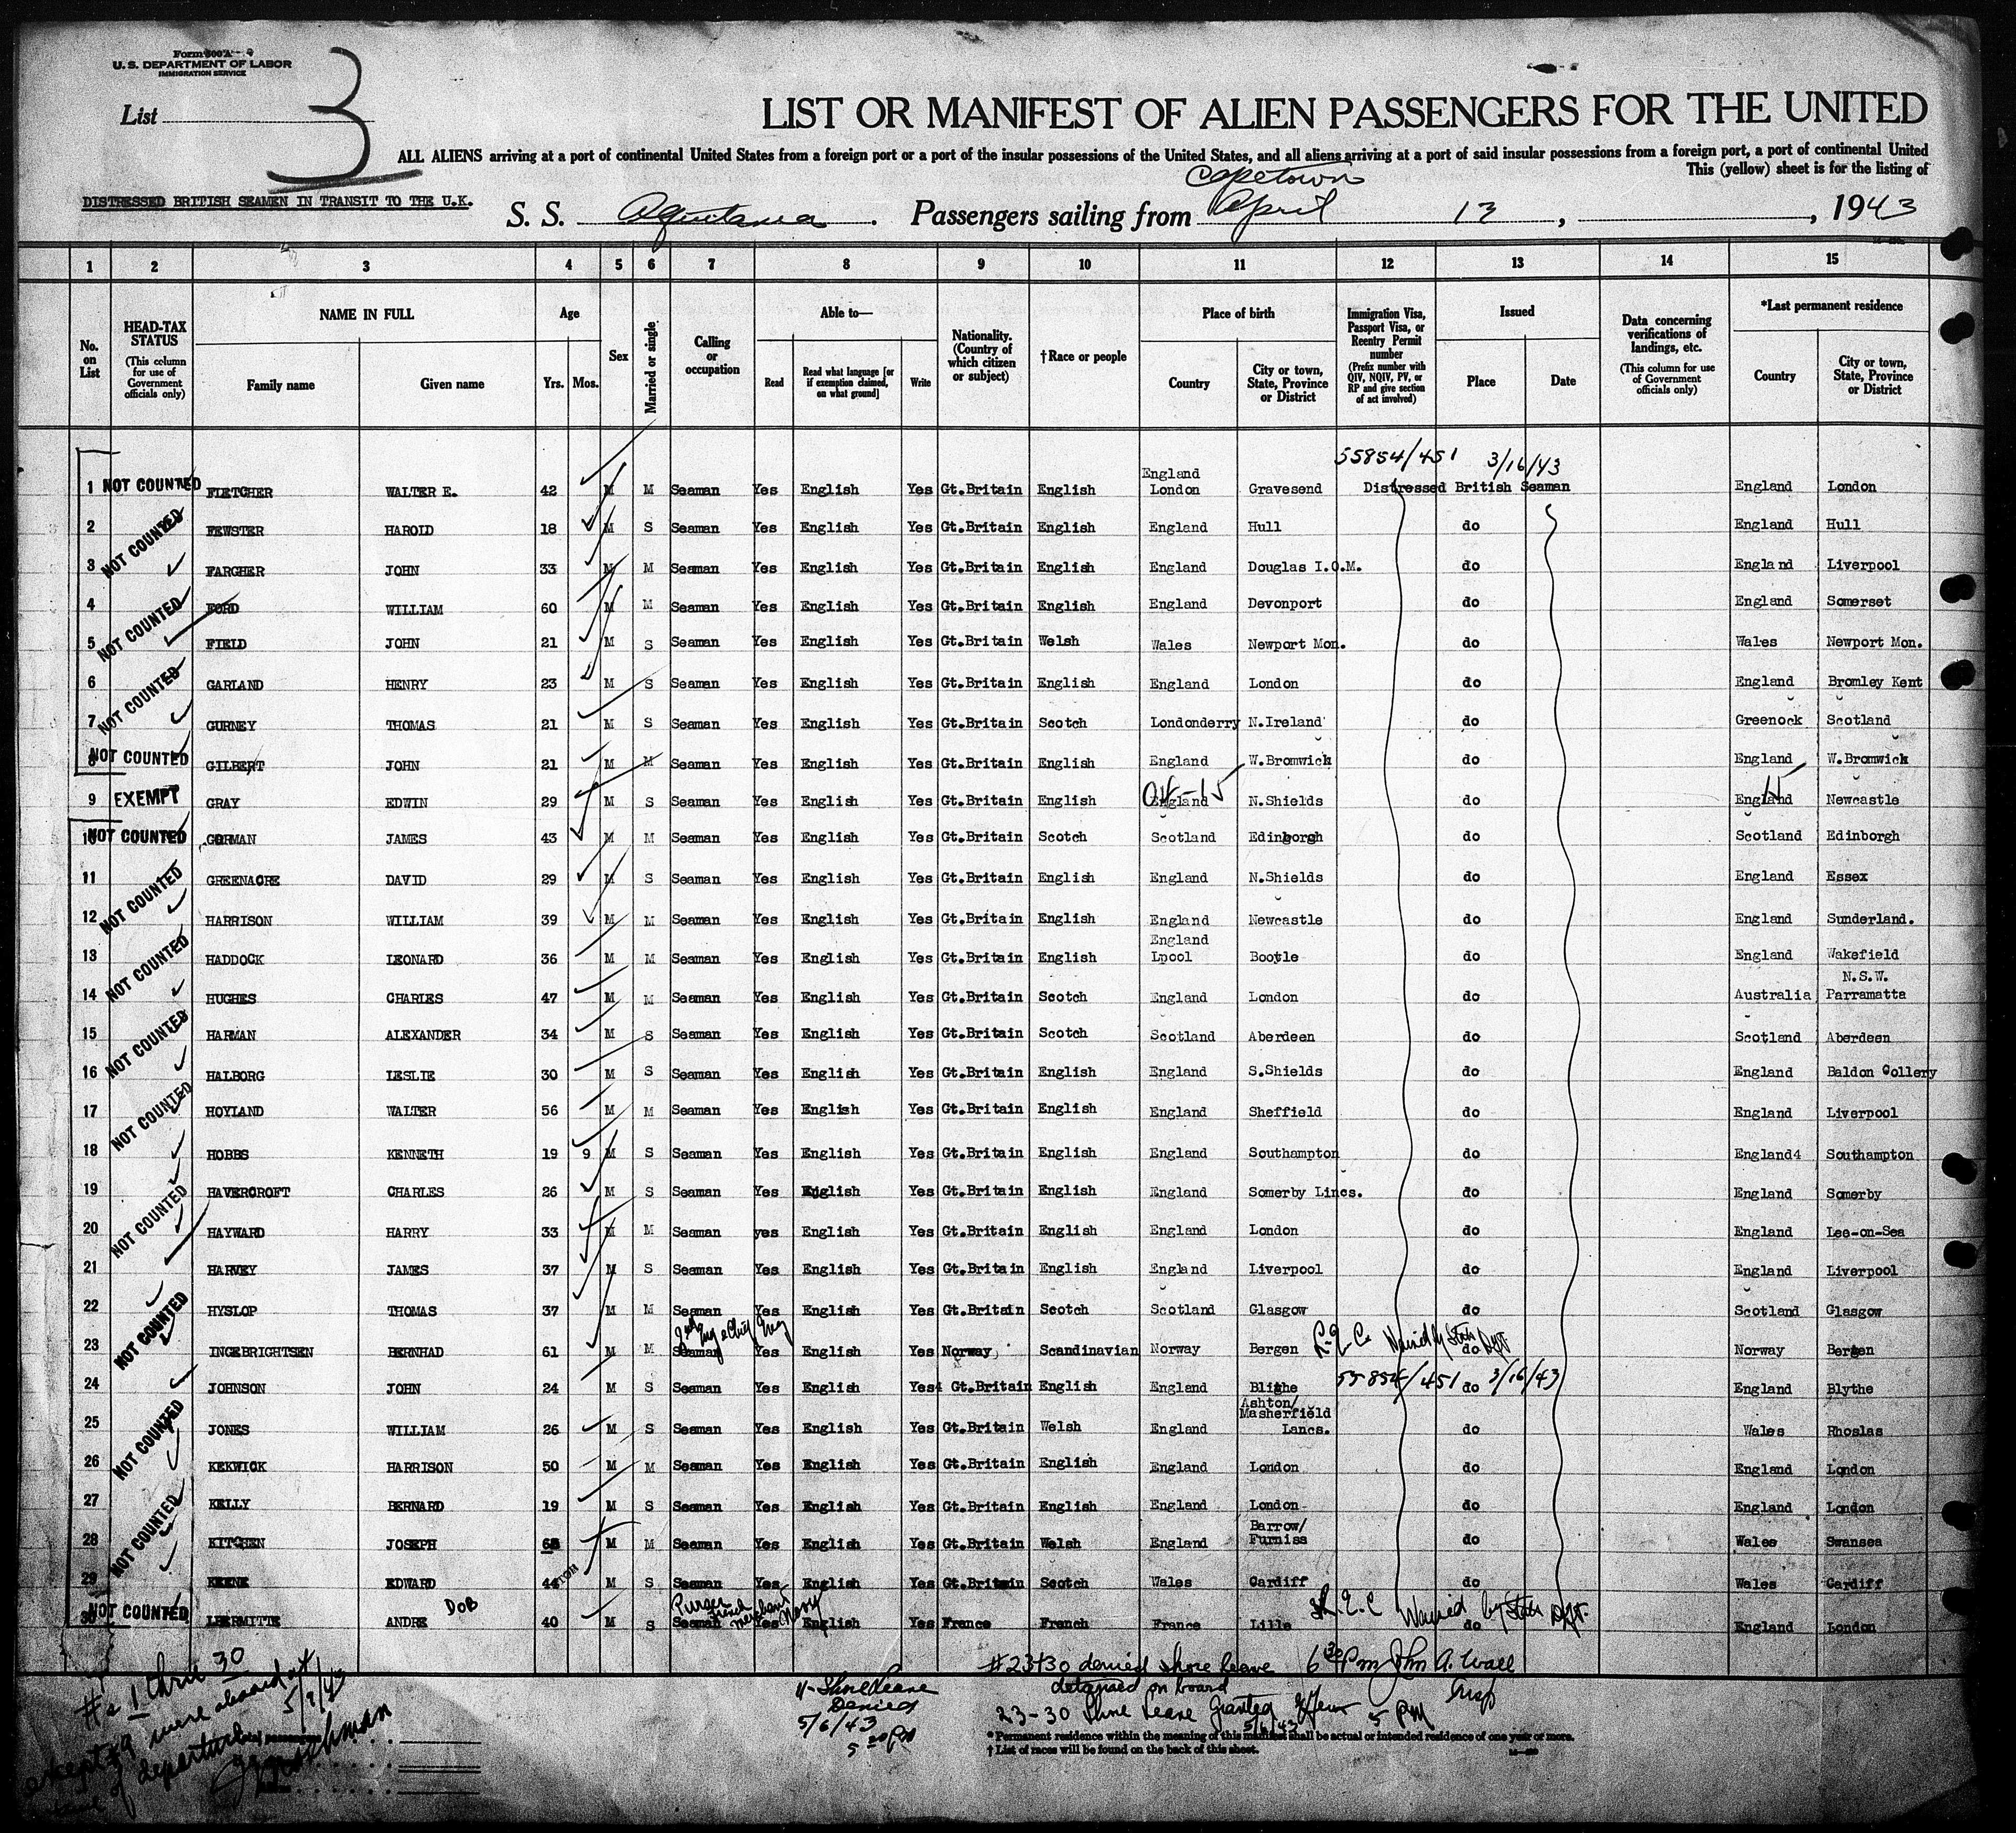 Form 500 A
U. S. DEPARTMENT OF LABOR
IMMIGRATION SERVICE
List 3
LIST OR MANIFEST OF ALIEN PASSENGERS FOR THE UNITED
ALL ALIENS arriving at a port of continental United States from a foreign port or a port of the insular possessions of the United States, and all aliens arriving at a port of said insular possessions from a foreign port, a port of continental United
This (yellow) sheet is for the listing of
DISTRESSED BRITISH SEAMEN IN TRANSIT TO THE U.K.
Capetown
S. S. Aquitania. Passengers sailing from April 13, , 1943
1 2 3 4 5 6 7 8 9 10 11 12 13 14 15
No. on List
HEAD-TAX STATUS (This column for use of Government officials only)
NAME IN FULL
Family name Given name
Age
Yrs. Mos.
Sex
Married or single
Calling or occupation
Able to—
Read Read what language [or if exemption claimed, on what ground] Write
Nationality. (Country of which citizen or subject)
†Race or people
Place of birth
Country City or town, State, Province or District
Immigration Visa, Passport Visa, or Reentry Permit number (Prefix number with QIV, NQIV, PV, or RP and give section of act involved)
Issued
Place Date
Data concerning verifications of landings, etc. (This column for use of Government officials only)
*Last permanent residence
Country City or town, State, Province or District
55854/451 3/16/43
England
1 NOT COUNTED FLETCHER WALTER E. 42 M M Seaman Yes English Yes Gt.Britain English London Gravesend Distressed British Seaman England London
2 NOT COUNTED FEWSTER HAROLD 18 M S Seaman Yes English Yes Gt.Britain English England Hull do England Hull
3 FARGHER JOHN 33 M M Seaman Yes English Yes Gt.Britain English England Douglas I.O.M. do England Liverpool
4 NOT COUNTED FORD WILLIAM 60 M M Seaman Yes English Yes Gt.Britain English England Devonport do England Somerset
5 FIELD JOHN 21 M S Seaman Yes English Yes Gt.Britain Welsh Wales Newport Mon. do Wales Newport Mon.
6 NOT COUNTED GARLAND HENRY 23 M S Seaman Yes English Yes Gt.Britain English England London do England Bromley Kent
7 GURNEY THOMAS 21 M S Seaman Yes English Yes Gt.Britain Scotch Londonderry N.Ireland do Greenock Scotland
8 NOT COUNTED GILBERT JOHN 21 M M Seaman Yes English Yes Gt.Britain English England W.Bromwich do England W.Bromwich
9 EXEMPT GRAY EDWIN 29 M S Seaman Yes English Yes Gt.Britain English England N.Shields do England Newcastle
10 NOT COUNTED GORMAN JAMES 43 M M Seaman Yes English Yes Gt.Britain Scotch Scotland Edinborgh do Scotland Edinborgh
11 NOT COUNTED GREENACRE DAVID 29 M S Seaman Yes English Yes Gt.Britain English England N.Shields do England Essex
12 HARRISON WILLIAM 39 M M Seaman Yes English Yes Gt.Britain English England Newcastle do England Sunderland.
England
13 NOT COUNTED HADDOCK LEONARD 36 M M Seaman Yes English Yes Gt.Britain English Lpool Bootle do England Wakefield
N.S.W.
14 HUGHES CHARLES 47 M M Seaman Yes English Yes Gt.Britain Scotch England London do Australia Parramatta
15 NOT COUNTED HARMAN ALEXANDER 34 M S Seaman Yes English Yes Gt.Britain Scotch Scotland Aberdeen do Scotland Aberdeen
16 HALBORG LESLIE 30 M S Seaman Yes English Yes Gt.Britain English England S.Shields do England Baldon Collery
17 NOT COUNTED HOYLAND WALTER 56 M M Seaman Yes English Yes Gt.Britain English England Sheffield do England Liverpool
18 HOBBS KENNETH 19 9 M S Seaman Yes English Yes Gt.Britain English England Southampton do England4 Southampton
19 NOT COUNTED HAVERCROFT CHARLES 26 M S Seaman Yes English Yes Gt.Britain English England Somerby Lincs. do England Somerby
20 HAYWARD HARRY 33 M M Seaman yes English Yes Gt.Britain English England London do England Lee-on-Sea
21 HARVEY JAMES 37 M S Seaman Yes English Yes Gt.Britain English England Liverpool do England Liverpool
22 NOT COUNTED HYSLOP THOMAS 37 M M Seaman Yes English Yes Gt.Britain Scotch Scotland Glasgow do Scotland Glasgow
23 INGEBRIGHTSEN BERNHAD 61 M M Seaman Yes English Yes Norway Scandinavian Norway Bergen do Norway Bergen
55854/451 3/16/43
24 JOHNSON JOHN 24 M S Seaman Yes English Yes4 Gt.Britain English England Blithe do England Blythe
Ashton/
Masherfield
25 NOT COUNTED JONES WILLIAM 26 M S Seaman Yes English Yes Gt.Britain Welsh England Lancs. do Wales Rhoslas
26 KEKWICK HARRISON 50 M M Seaman Yes English Yes Gt.Britain English England London do England London
27 KELLY BERNARD 19 M S Seaman Yes English Yes Gt.Britain English England London do England London
Barrow/
28 NOT COUNTED KITCHEN JOSEPH M M Seaman Yes English Yes Gt.Britain Welsh England Furniss do Wales Swansea
29 KEENE EDWARD 44 M S Seaman Yes English Yes Gt.Britain Scotch Wales Cardiff do Wales Cardiff
DOB Purser French Merchant Navy Waived by State Dept.
30 NOT COUNTED LHERMITTE ANDRE 40 M S Seaman Yes English Yes France French France Lille do England London
#s 1 thru 30
except #9 were aboard at
departure 5/9/43
11-Shore Leave
Denied
5/6/43
#23+30 denied shore leave 6 30 Pm John A. Wall
detained on board Insp
23-30 Shore Leave Granted
5/6/43 5 PM
*Permanent residence within the meaning of this manifest shall be actual or intended residence of one year or more.
†List of races will be found on the back of this sheet.